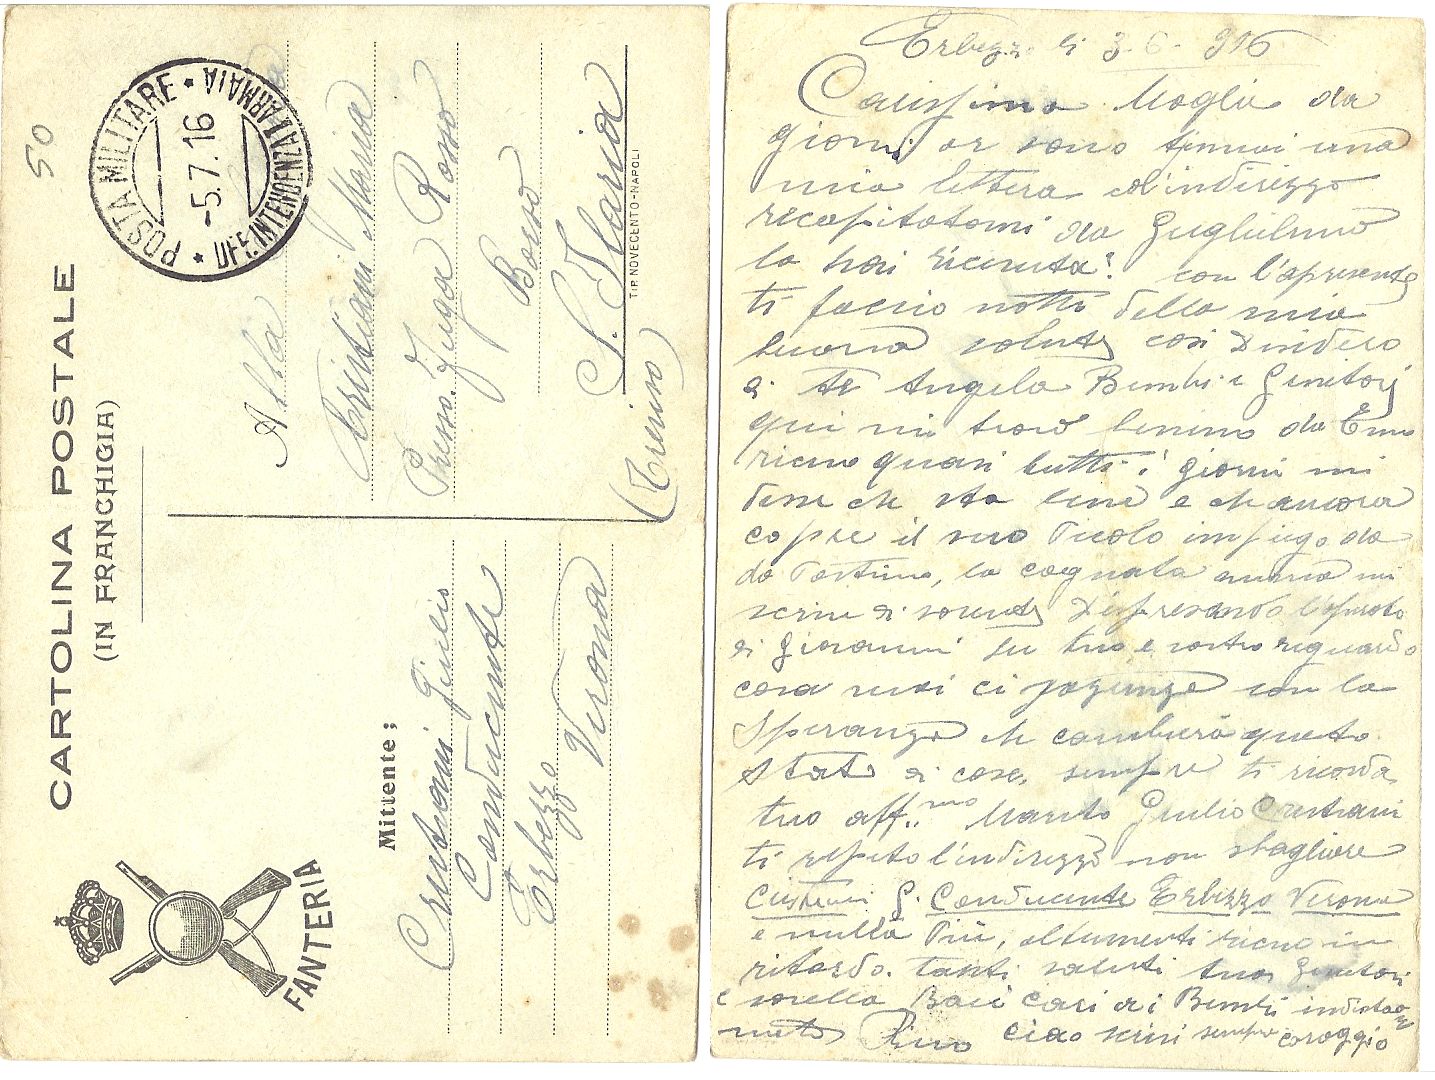 CARTOLINA POSTALE
(IN FRANCHIGIA)
50
POSTA MILITARE * UFF. INTENDENZA I ARMATA *
-5.7.16
Alla
Cristiani Maria
Presso. Zuga Rosso
Borso
S. Ilaria
(Treviso)
TIP. NOVECENTO-NAPOLI
FANTERIA
Mittente;
Cristiani Giulio
Conducente
Erbezzo
Verona
Erbezzo li 3-6-916
Carissima Moglie da
giorni or sono una
mia lettera ed'indirizzo
ricapitatomi da Guglielmo
la hai ricevuta? con l'apresente
ti faccio notto della mia
buona salute così Desidero
di te Angela Bimbi e Genitori
qui mi trovo benino da Emo
ricevo quasi tutti i giorni mi
disse che sta bene e che ancora
copre il suo Picolo impiego da
da Postino, la cognata mi
scrive di sovente l'operato
di Giovanni su tuo e vostro riguardo
cosa vuoi ci pazienza con la
Speranza che cambierà questo
stato di cose, sempre ti ricorda
tuo aff.mo Marito Giulio Cristiani
ti repeto l'indirizzo non sbagliare
Cristiani G. Conducente Erbezzo Verona
e nulla Più, altrimenti ricevo in
ritardo. tanti saluti tuoi Genitori
e sorella Baci cari ai Bimbi indistta
mente ciao scrivi sempre coraggio